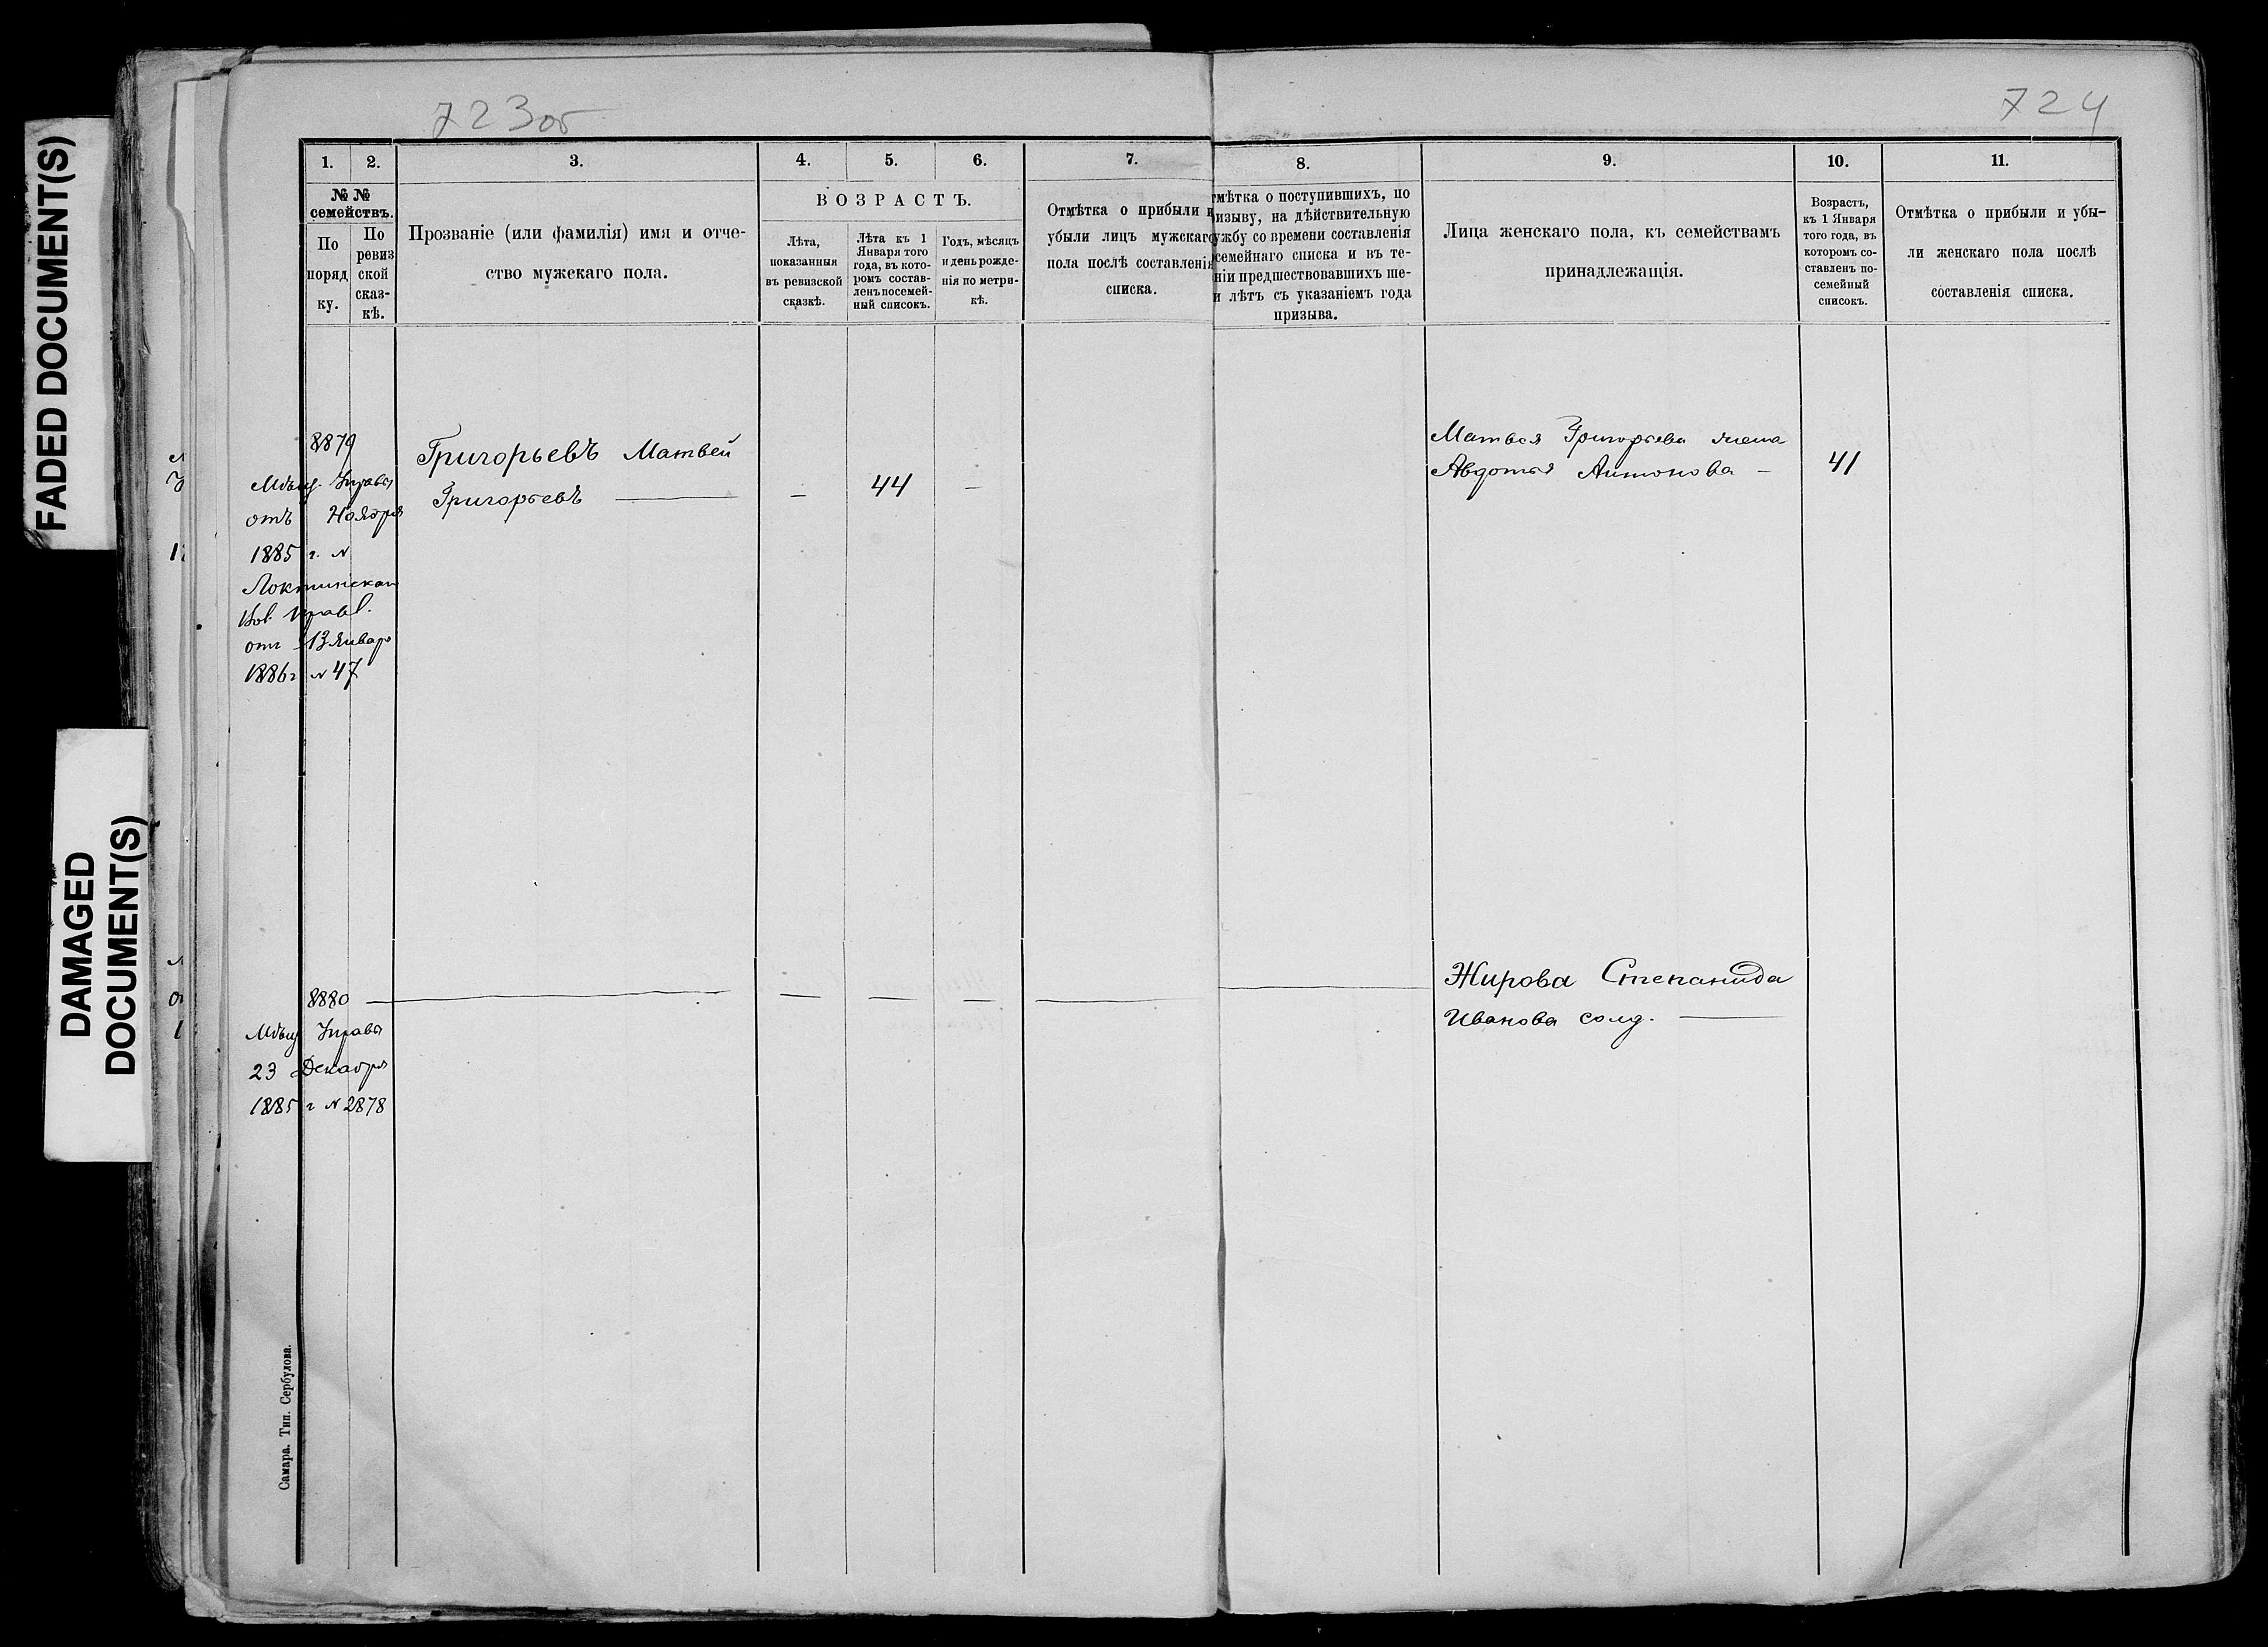 FADED DOCUMENT(S)
DAMAGED
DOCUMENT(S)
723об
724
1.
2.
3.
4.
5.
6.
7.
№ №
семействъ.
По
поряд
ку.
По
ревиз
ской
сказ-
кѣ.
Прозваніе (или фамилія) имя и отче-
ство мужскаго пола.
ВОЗРАСТЪ.
Лѣта,
показанныя
въ ревизской
сказкѣ.
Лѣта къ 1
Января того
года, въ кото-
ромъ состав-
ленъ посемей-
ный списокъ.
Годъ, мѣсяцъ
и день рожде-
нія по метри-
кѣ.
Отмѣтка о прибыли и
убыли лицъ мужскаго
пола послѣ составленія
списка.
8.
9.
10.
11.
тмѣтка о поступившихъ, по
изыву, на дѣйствительную
ужбу со времени составленія
семейнаго списка и въ те-
ніи предшествовавшихъ ше-
и лѣтъ съ указаніемъ года
призыва.
Лица женскаго пола, къ семействамъ
принадлежащія.
Возрастъ,
къ 1 Января
того года, въ
которомъ со-
ставленъ по-
семейный
списокъ.
Отмѣтка о прибыли и убы-
ли женскаго пола послѣ
составленія списка.
8879
Мѣщ. Управы
отъ Ноября
1885 г. №
Локтинскаго
Вол. Правл.
отъ 13 Января
1886 г № 47
Григорьевъ Матвей
Григорьевъ —
— 44 —
Матвея Григорьева жена
Авдотья Антонова —
41
8880 — — — — — —
Мѣщ Управы
23 Декабря
1885 г № 2878
Жирова Степанида
Иванова солд. —
Самара. Тип. Сербулова.